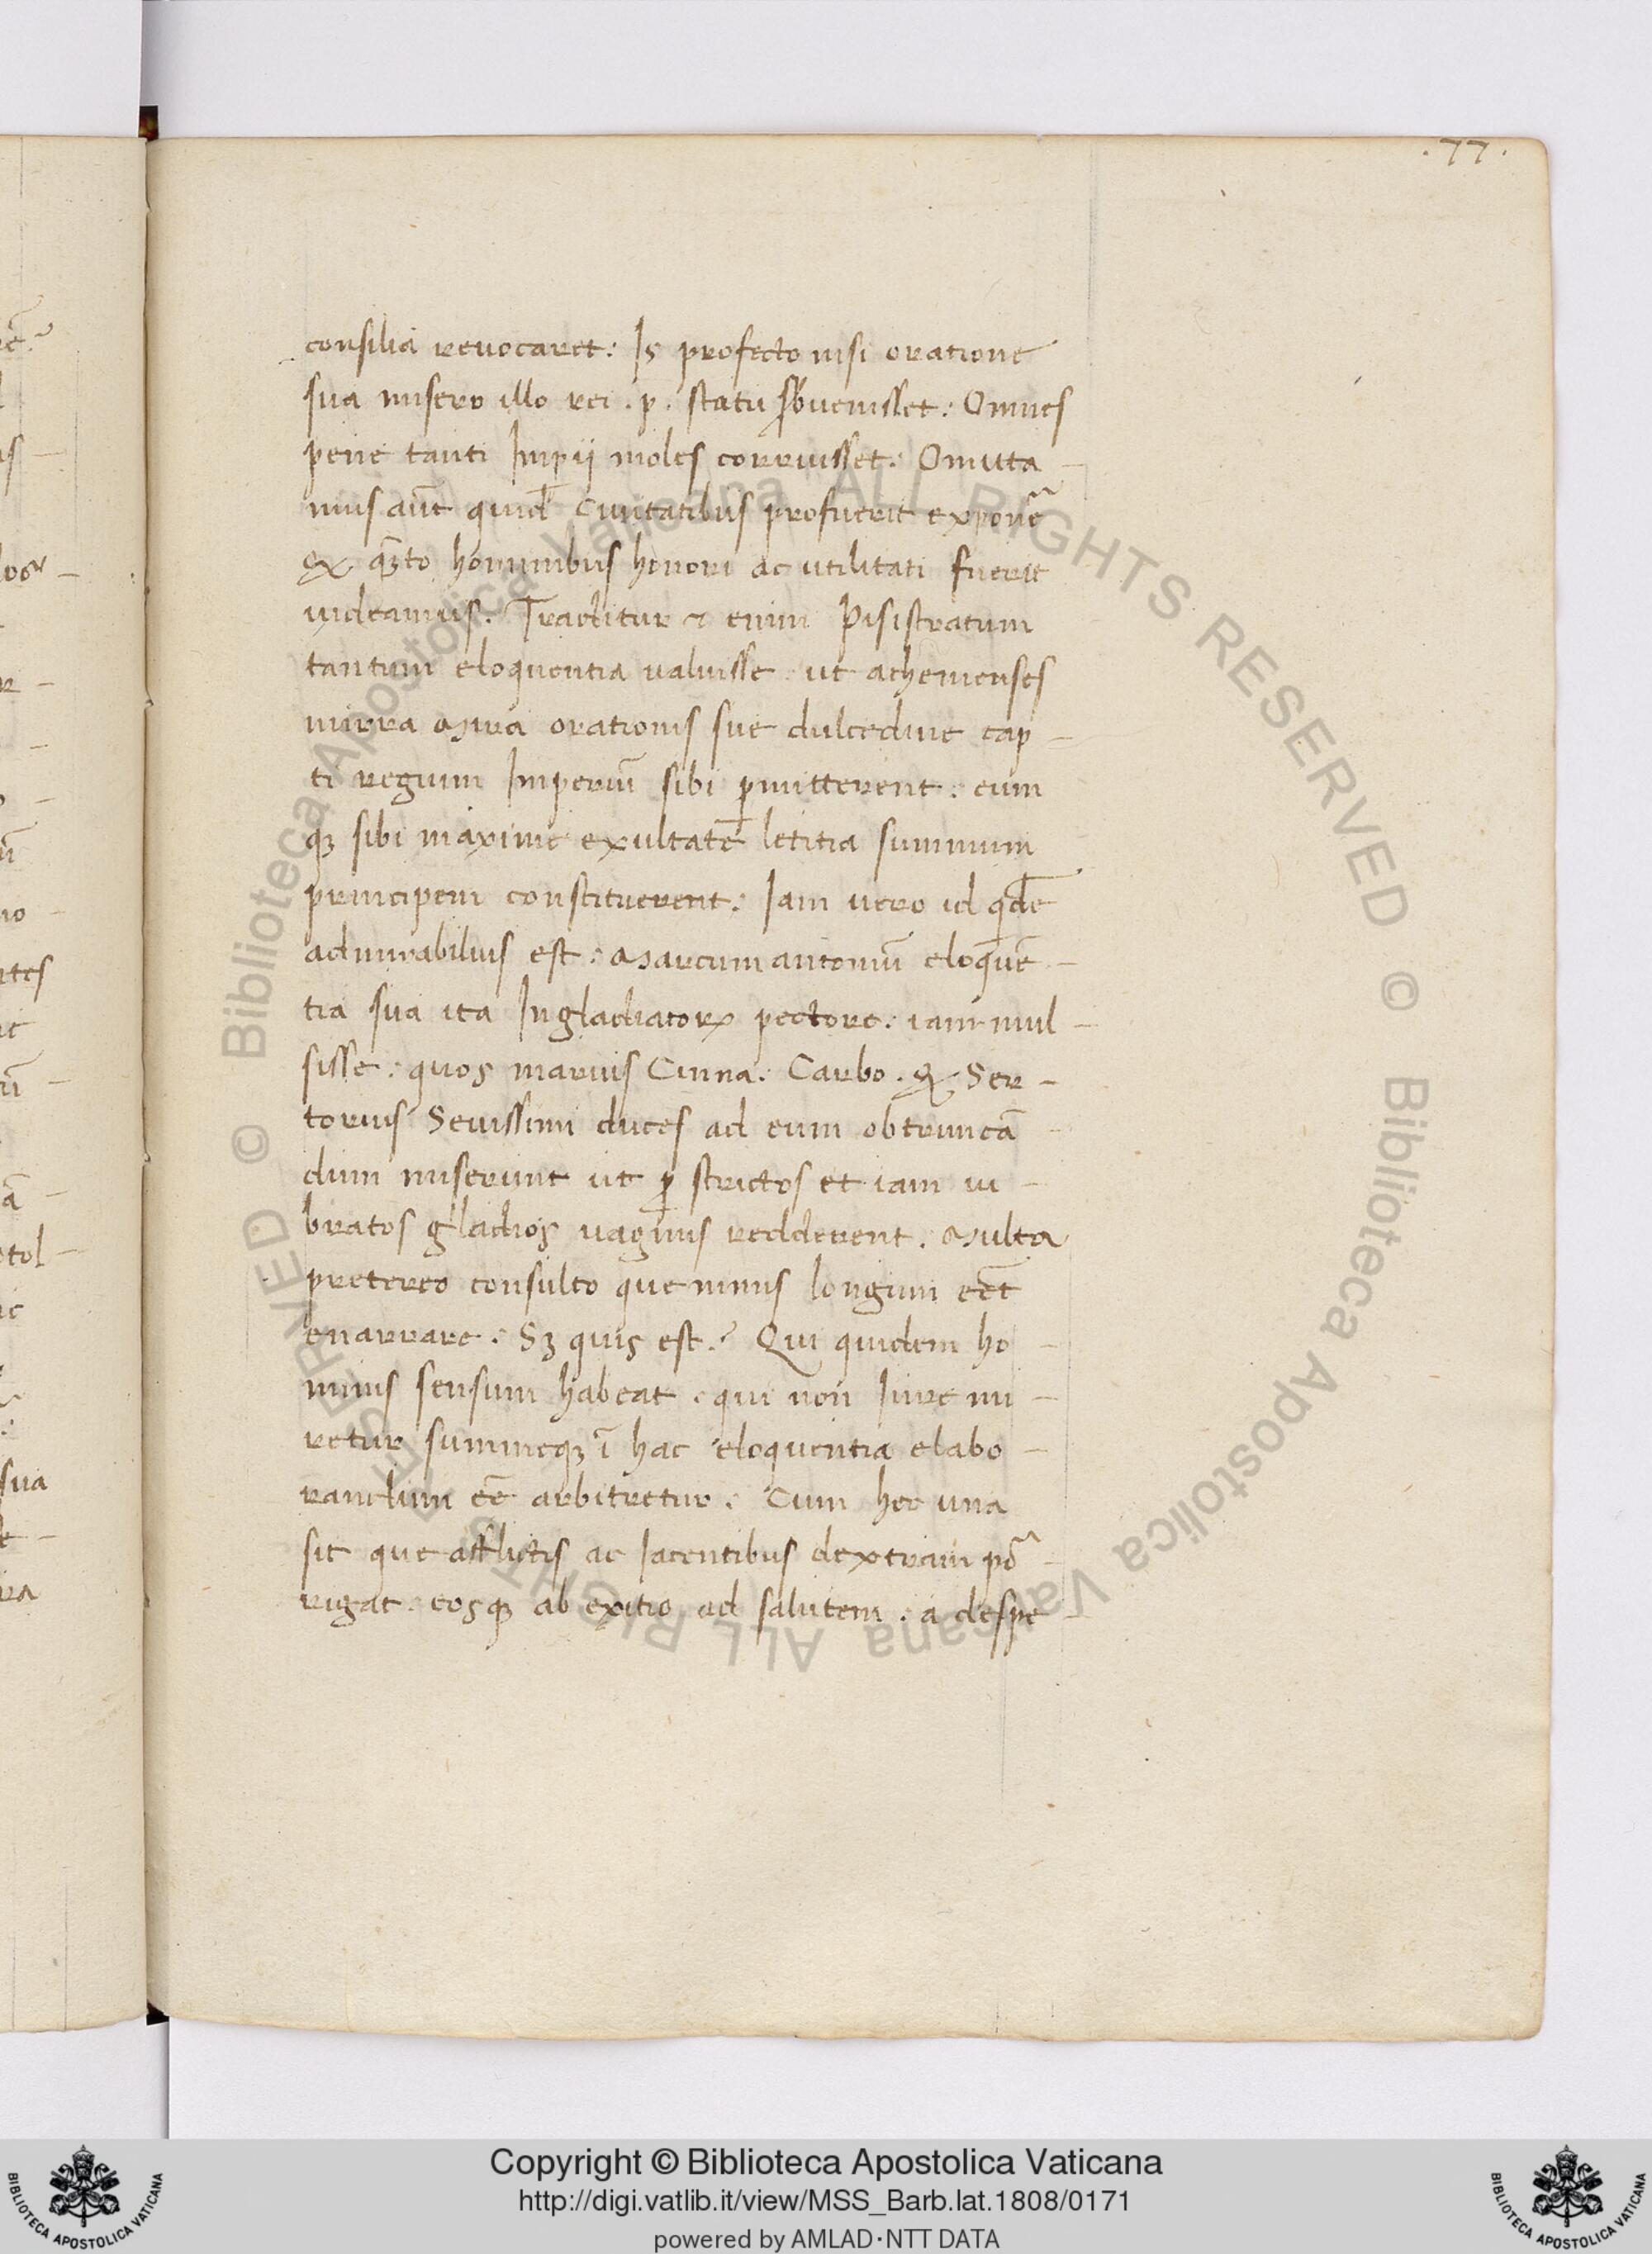 .77.
consilia revocaret: Is profecto nisi oratione
sua misero illo rei .p. statu sb̄venisset: Omnes
pene tanti Imp̄ij moles corruisset: Omitta-
mus aūt quid Civitatibus profuerit exponē
& q̄ȝto hominibus honori ac utilitati fuerit
videamus. Traditur & enim Pisistratum
tantum eloquentia valuisse ut athenienses
mirra Mira orationis sue dulcedine cap-
ti regium Imperiū sibi ꝑmitterent: eum
qȝ sibi maxime exultatē letitia summum
principem constituerent: Iam vero id qdē
admirabilius est: Marcum antoniū eloquē-
tia sua ita In gladiatorꝝ pectore: iam mul-
sisse: quos marius Cinna. Carbo. & Ser-
torius Sevissimi duces ad eum obtruncā-
dum miserunt ut ꝑ strictos et iam vi-
bratos gladios vaginis redderent. Multa
pretereo consulto que nimis longum eēt
enarrare. Sȝ quis est? Qui quidem ho-
minis sensum habeat. qui non Iure mi-
retur summeqȝ ī hac eloquentia elabo-
randum eē arbitretur. Cum hec una
sit que afflictis ac Iacentibus dextram po-
rigat. eosqȝ ab exitio ad salutem. a despe-
Copyright © Biblioteca Apostolica Vaticana
http://digi.vatlib.it/view/MSS_Barb.lat.1808/0171
powered by AMLAD·NTT DATA
© Biblioteca Apostolica Vaticana ALL RIGHTS RESERVED © Biblioteca Apostolica Vaticana ALL RIGHTS RESERVED
BIBLIOTECA APOSTOLICA VATICANA
BIBLIOTECA APOSTOLICA VATICANA